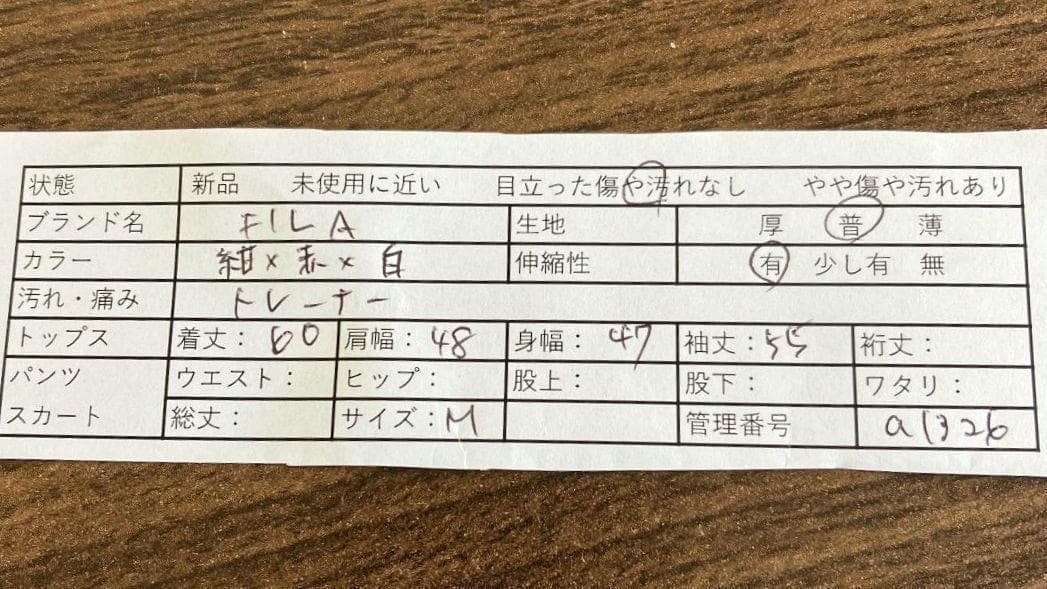 状態 新品 未使用に近い 目立った傷や汚れなし やや傷や汚れあり
ブランド名 FILA 生地 厚 普 薄
カラー 紺×赤×白 伸縮性 有 少し有 無
汚れ・痛み トレーナー
トップス 着丈：60 肩幅：48 身幅：47 袖丈：55 裄丈：
パンツ ウエスト： ヒップ： 股上： 股下： ワタリ：
スカート 総丈： サイズ：M 管理番号 a1326